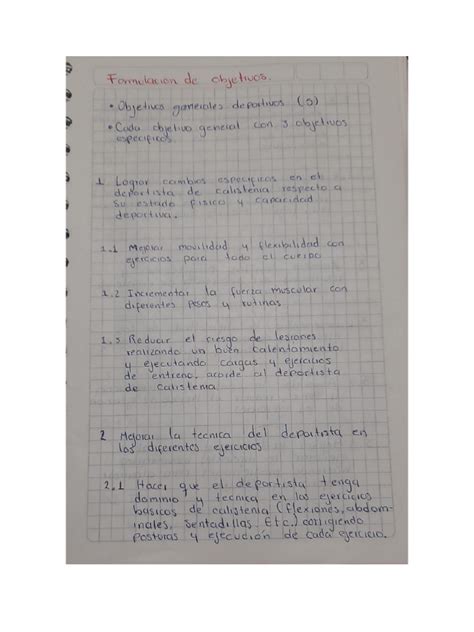 Formulacion de objetivos.
• Objetivos generales deportivos (5)
• Cada objetivo general con 3 objetivos
especificos.
1 Lograr cambios especificos en el
deportista de calistenia respecto a
su estado fisico y capacidad
deportiva.
1.1 Mejorar movilidad y flexibilidad con
ejercicios para todo el cuerpo
1.2 Incrementar la fuerza muscular con
diferentes pesos y rutinas
1.3 Reducir el riesgo de lesiones
realizando un buen calentamiento
y ejecutando cargas y ejercicios
de entreno, acorde al deportista
de calistenia
2 Mejorar la tecnica del deportista en
los diferentes ejercicios
2.1 Hacer que el deportista tenga
dominio y tecnica en los ejercicios
basicos de calistenia (flexiones, abdom-
inales, sentadillas, Etc.) corrigiendo
posturas y ejecución de cada ejercicio.